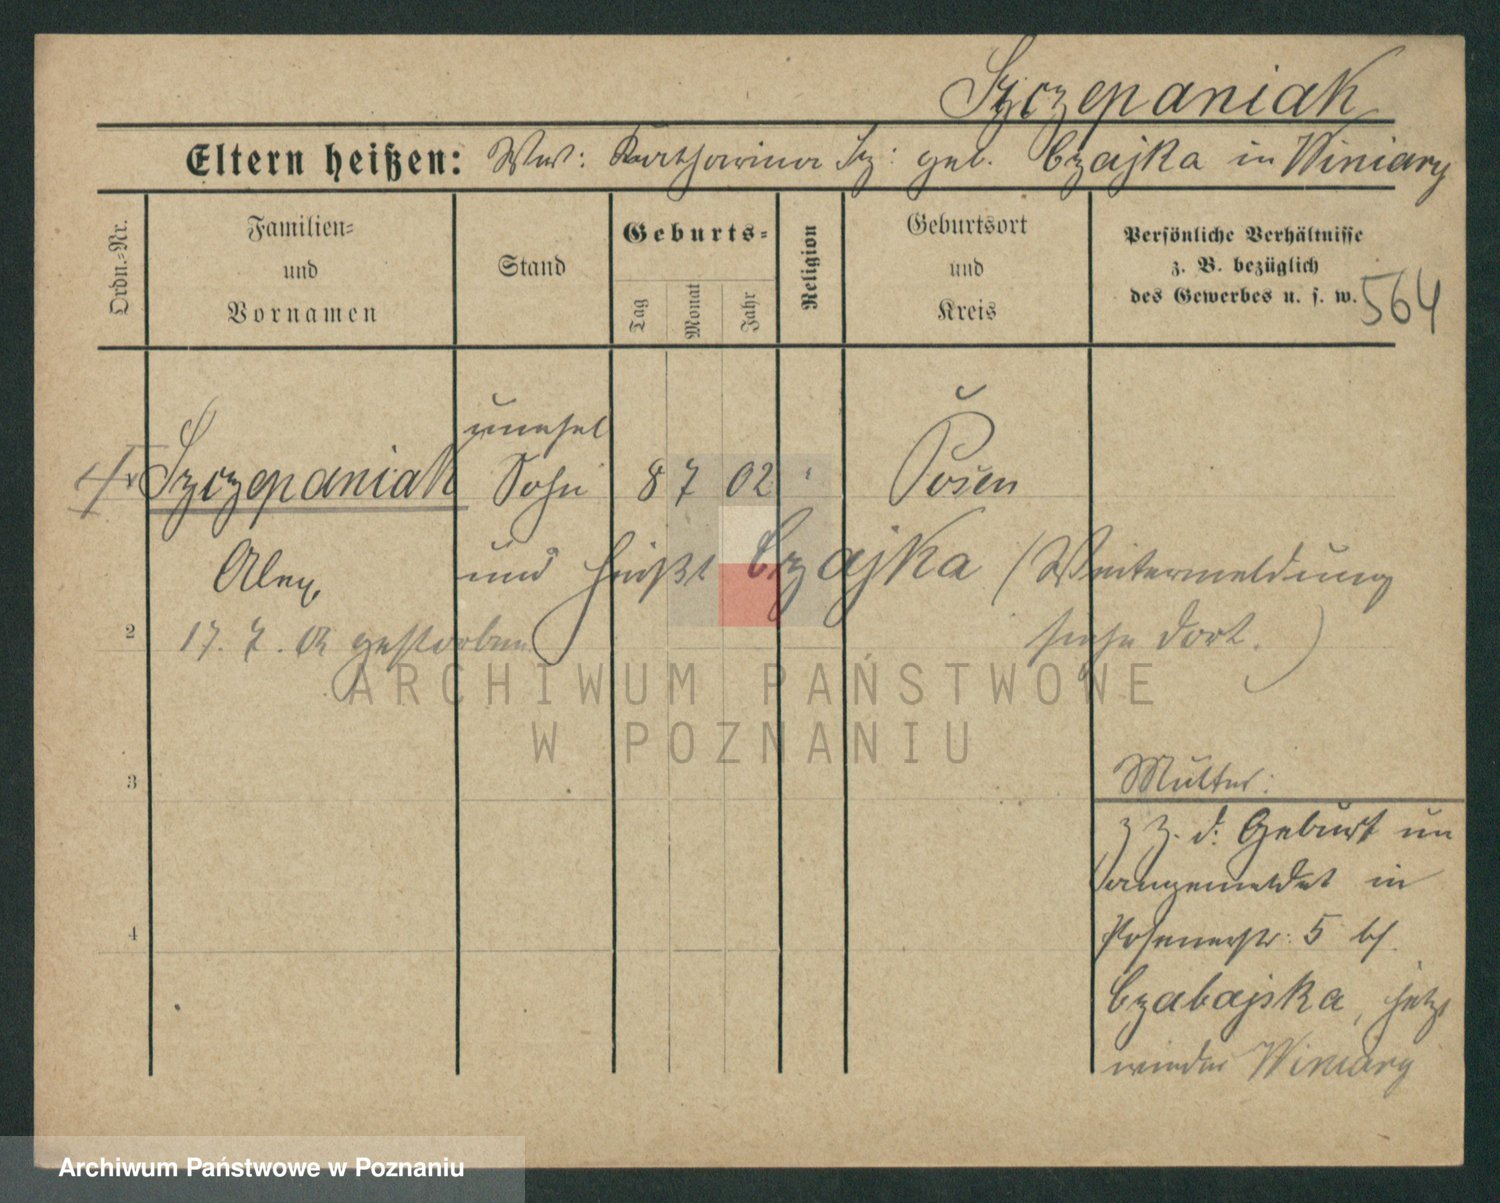 Szczepaniak
Eltern heißen: Ww: Katharina Sz: geb. Czajka in Winiary
Ordn.-Nr.
Familien-
und
Vornamen
Stand
Geburts-
Tag
Monat
Jahr
Religion
Geburtsort
und
Kreis
Persönliche Verhältnisse
z. B. bezüglich
des Gewerbes u. s. w.
564
unehel
Szczepaniak Sohn 8 7 02 Posen
Alex,
und heißt Czajka (Weitermeldung
siehe dort.)
2
17. 7. 02 gestorben
3
4
Mutter:
z Z. d: Geburt un
angemeldet in
Posenerstr: 5 bf.
Czabajska, jetzt
wieder Winiary
ARCHIWUM PAŃSTWOWE
W POZNANIU
Archiwum Państwowe w Poznaniu